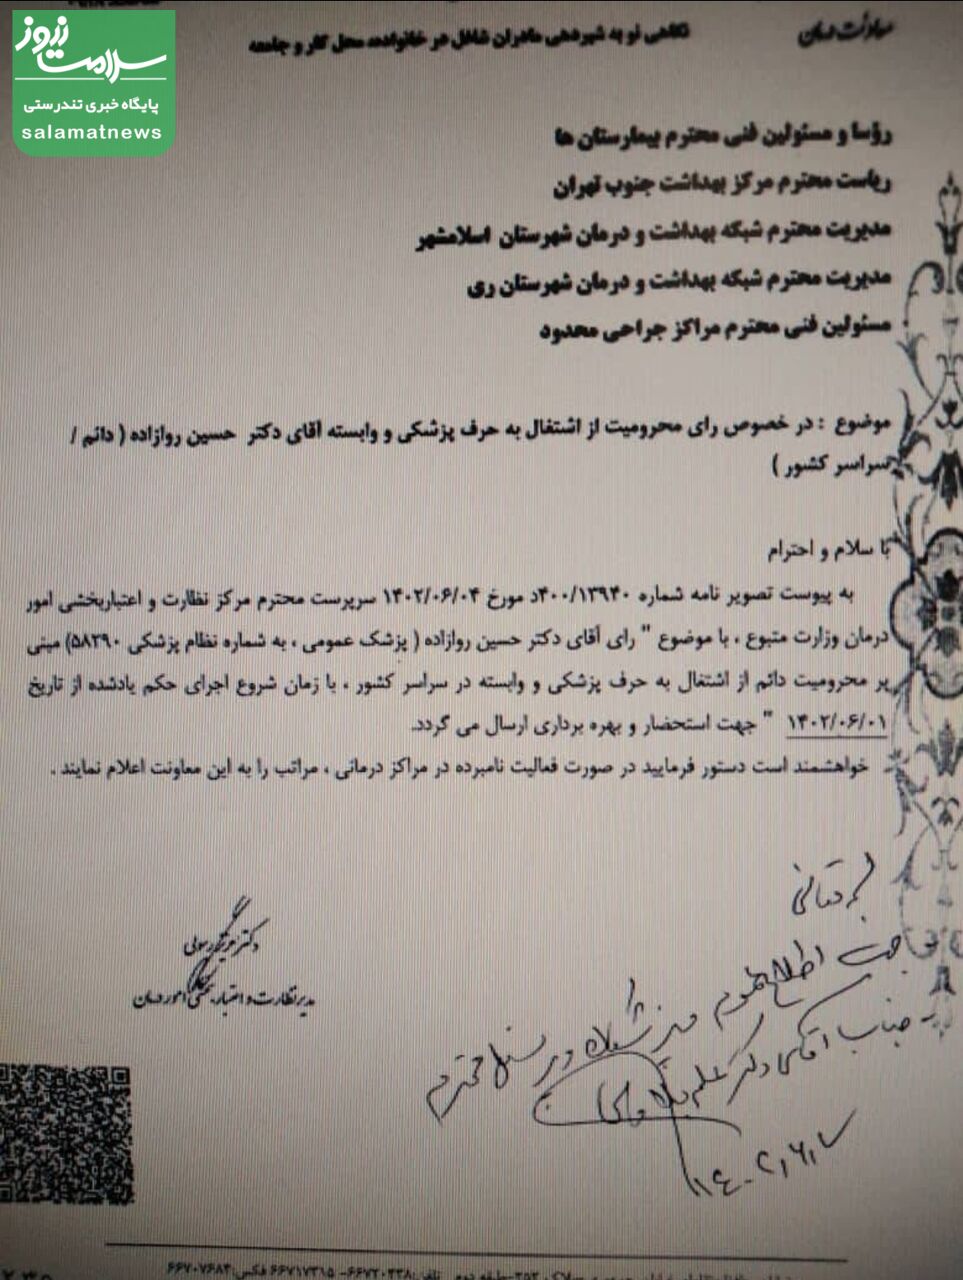 سلامت نیوز
پایگاه خبری تندرستی
salamatnews
معاونت درمان
نگاهی نو به شیردهی مادران شاغل در خانواده، محل کار و جامعه
رؤسا و مسئولین فنی محترم بیمارستان ها
ریاست محترم مرکز بهداشت جنوب تهران
مدیریت محترم شبکه بهداشت و درمان شهرستان اسلامشهر
مدیریت محترم شبکه بهداشت و درمان شهرستان ری
مسئولین فنی محترم مراکز جراحی محدود
موضوع : در خصوص رای محرومیت از اشتغال به حرف پزشکی و وابسته آقای دکتر حسین روازاده ( دائم /
سراسر کشور )
با سلام و احترام
به پیوست تصویر نامه شماره ۴۰۰/۱۳۹۴۰د مورخ ۱۴۰۲/۰۶/۰۴ سرپرست محترم مرکز نظارت و اعتباربخشی امور
درمان وزارت متبوع ، با موضوع " رای آقای دکتر حسین روازاده ( پزشک عمومی ، به شماره نظام پزشکی ۵۸۲۹۰) مبنی
بر محرومیت دائم از اشتغال به حرف پزشکی و وابسته در سراسر کشور ، با زمان شروع اجرای حکم یادشده از تاریخ
۱۴۰۲/۰۶/۰۱ " جهت استحضار و بهره برداری ارسال می گردد.
خواهشمند است دستور فرمایید در صورت فعالیت نامبرده در مراکز درمانی ، مراتب را به این معاونت اعلام نمایند .
جهت اطلاع عموم پزشکان و پرسنل محترم
جناب آقای دکتر
۱۴۰۲/۶/۷
دکتر رسولی
مدیر نظارت و اعتباربخشی امور درمان
تلفن: ۶۶۷۲۰۴۳۸- ۶۶۷۱۷۳۱۵ فکس: ۶۶۷۰۷۶۸۴